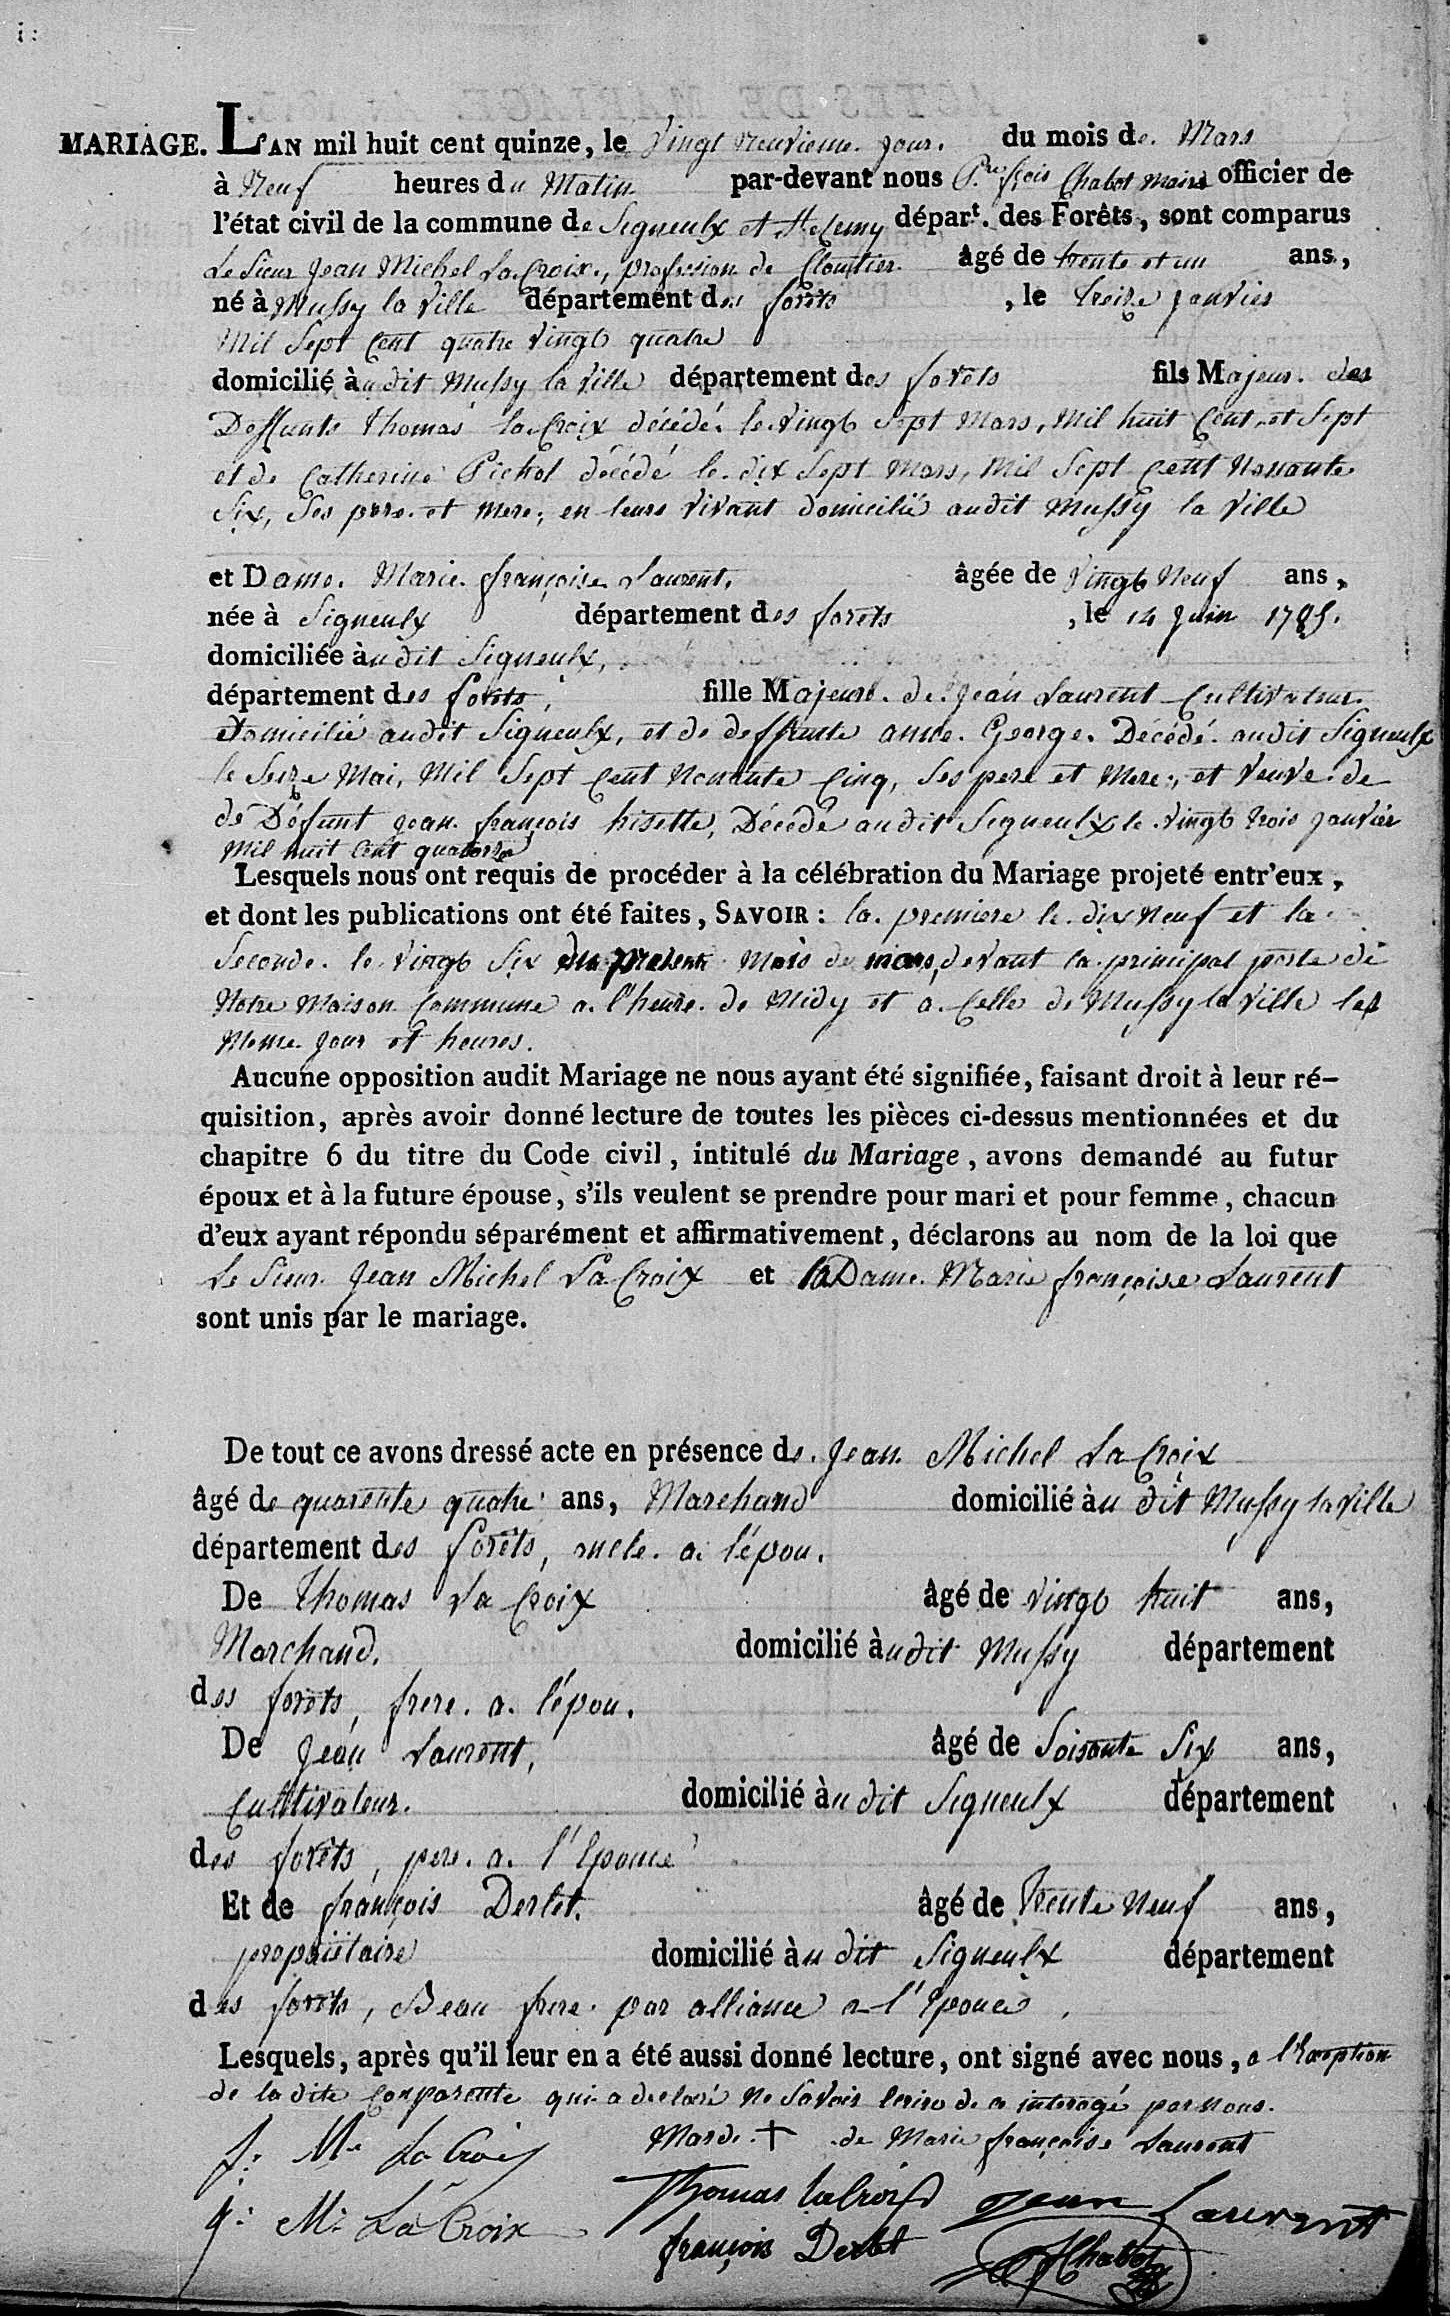 MARIAGE. L'AN mil huit cent quinze, le Vingt neuvieme jour. du mois de Mars
à Neuf heures du Matin par-devant nous P.re fçois Chabot Maire officier de
l'état civil de la commune de Signeulx et St Remy départ. des Forêts, sont comparus
Le Sieur Jean Michel LaCroix, profession de Cloutier âgé de trente et un ans,
né à Mussy la Ville département des forêts , le treize janvier
Mil Sept Cent quatre Vingt quatre
domicilié àu dit Mussy la Ville département des forets fils Majeur. des
Deffunts Thomas la Croix décédé le vingt sept Mars, Mil huit Cent et Sept
et de Catherine Pichot décédé le dix Sept Mars, Mil Sept Cent Nonante
Six, Ses pere et Mere, en leurs Vivant domicilié audit Mussy la Ville
et Dame. Marie françoise Laurent, âgée de Vingt Neuf ans,
née à Signeulx département des forets , le 14 Juin 1785.
domiciliée àu dit Signeulx,
département des forets, fille Majeure de Jean Laurent Cultivateur
Domicilié audit Signeulx, et de deffunte anne George. Décédé audit Signeulx
le Seize Mai, Mil Sept Cent Nonante Cinq, Ses pere et Mere, et Veuve de
de Défunt Jean françois hisette, Décédé audit Signeulx le Vingt trois janvier
Mil huit Cent quatorze
Lesquels nous ont requis de procéder à la célébration du Mariage projeté entr'eux,
et dont les publications ont été faites, SAVOIR : la premiere le dix Neuf et la
Seconde le Vingt Six du présent Mois de mars, devant la principal porte de
Notre Maison Commune a l'heure de Midy et a Celle de Mussy la Ville les
Meme jour et heures.
Aucune opposition audit Mariage ne nous ayant été signifiée, faisant droit à leur ré-
quisition, après avoir donné lecture de toutes les pièces ci-dessus mentionnées et du
chapitre 6 du titre du Code civil, intitulé du Mariage, avons demandé au futur
époux et à la future épouse, s'ils veulent se prendre pour mari et pour femme, chacun
d'eux ayant répondu séparément et affirmativement, déclarons au nom de la loi que
Le Sieur Jean Michel La Croix et la Dame Marie françoise Laurent
sont unis par le mariage.
De tout ce avons dressé acte en présence de Jean Michel La Croix
âgé de quarente quatre ans, Marchand domicilié àu dit Mussy la Ville
département des forêts, oncle a l'épou.
De Thomas La Croix âgé de Vingt huit ans,
Marchand. domicilié àu dit Mussy département
des forets, frere a l'épou.
De Jean Laurent, âgé de Soisante Six ans,
Cultivateur. domicilié àu dit Signeulx département
des forêts, pere a l'Epouce
Et de françois Derlet. âgé de Trente Neuf ans,
propriétaire domicilié àu dit Signeulx département
des forets, Beau frere par alliance a l'Epouce,
Lesquels, après qu'il leur en a été aussi donné lecture, ont signé avec nous, a l'Exception
de la dite Comparente qui a declaré Ne Savoir Ecrire de ce interogé par nous.
J: M. La Croix Marde + de Marie françoise Laurent
J: M: La Croix Thomas LaCroix Jean Laurent
françois Derlet Chabot